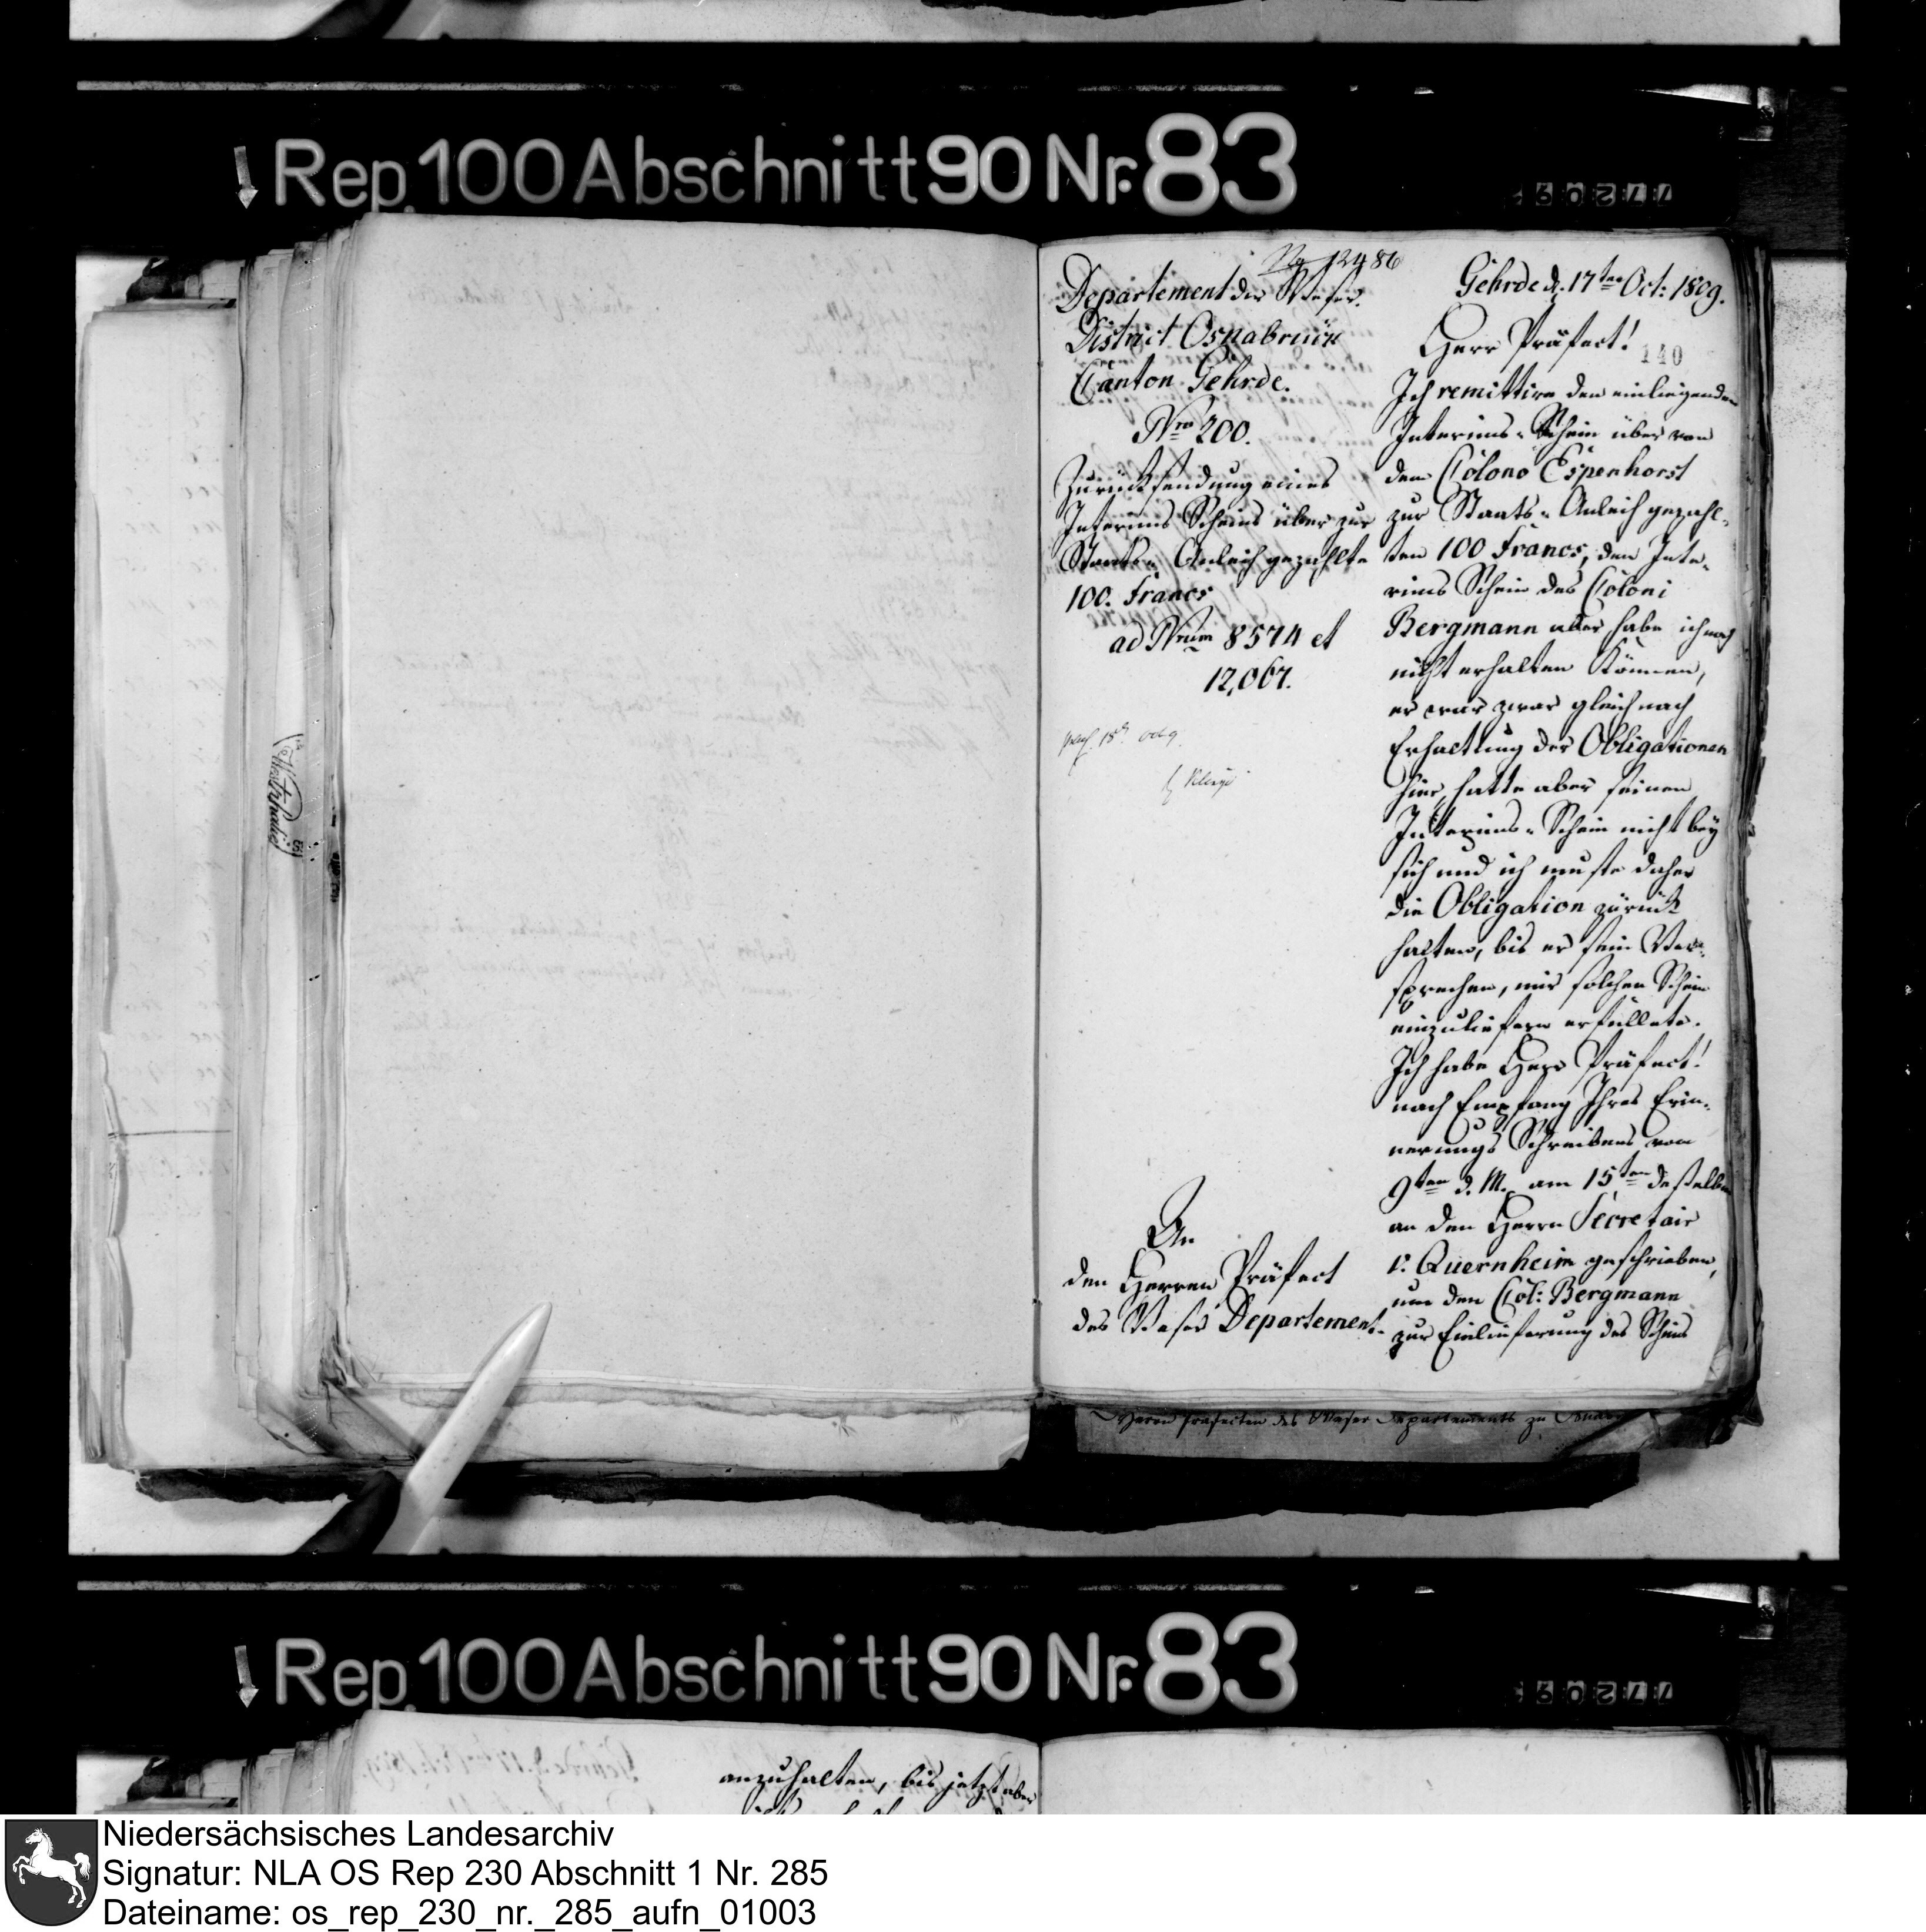 Rep. 100 Abschnitt 90 Nr. 83
No 12486
Departement der Weser.
District Osnabrück
Canton Gehrde.
Nro 200.
Zurücksendung eines
Interims Scheins über zur
Staats-Anleih gezahlte
100. Francs
ad Nrum 8574 et
12,067.
18t
An
den Herren Präfect
des Weser Departement.
Gehrde d. 17ten Oct: 1809.
Herr Präfect!
140
Ich remittire den einliegenden
Interims-Schein über von
dem Colono Espenhorst
zur Staats-Anleih gezahl-
ten 100 Francs, den Inte-
rims Schein des Coloni
Bergmann aber habe ich noch
nicht erhalten können,
er war zwar gleich nach
Erhaltung der Obligationen
hier, hatte aber seinen
Interims-Schein nicht bey
sich und ich muste daher
die Obligation zurück
halten, bis er sein Ver-
sprechen, mir solchen Schein
einzuliefern erfüllete.
Ich habe Herr Präfect!
nach Empfang Ihres Erin-
nerungs Schreibens vom
9ten d. M. am 15ten deßelben
an den Herrn Secretair
v. Quernheim geschrieben,
um den Col: Bergmann
zur Einlieferung des Scheins
Herrn Präfecten des Weser Departements zu
Rep. 100 Abschnitt 90 Nr. 83
anzuhalten, bis jetzt aber
Niedersächsisches Landesarchiv
Signatur: NLA OS Rep 230 Abschnitt 1 Nr. 285
Dateiname: os_rep_230_nr._285_aufn_01003